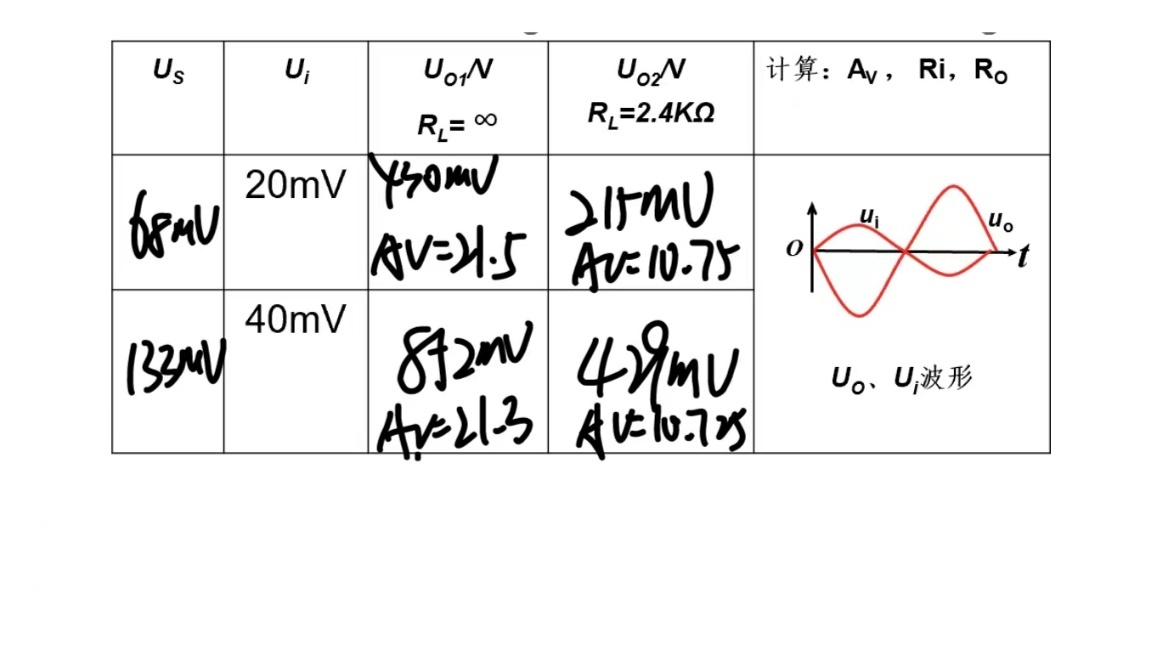 U_S
U_i
U_O1/V
R_L= ∞
U_O2/V
R_L=2.4KΩ
计算：A_V， Ri，R_O
68mV
20mV
430mV
AV=21.5
215mV
AV=10.75
u_i
u_o
O
t
133mV
40mV
852mV
AV=21.3
429mV
AV=10.725
U_O、U_i波形